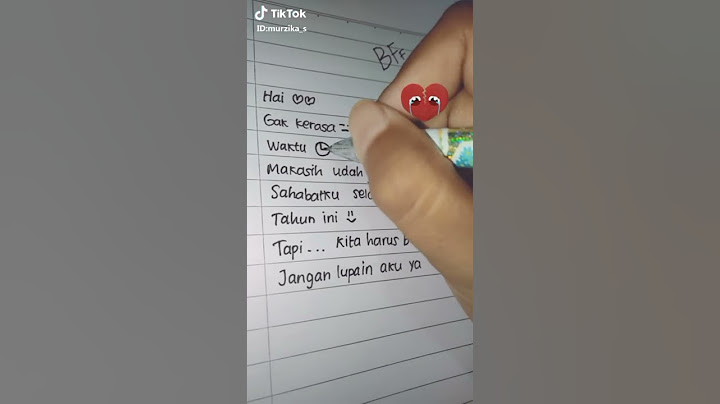 TikTok
ID:murzika_s
BFF
Hai
Gak kerasa
Waktu
Makasih udah
Sahabatku
Tahun ini
Tapi... Kita harus
Jangan lupain aku ya